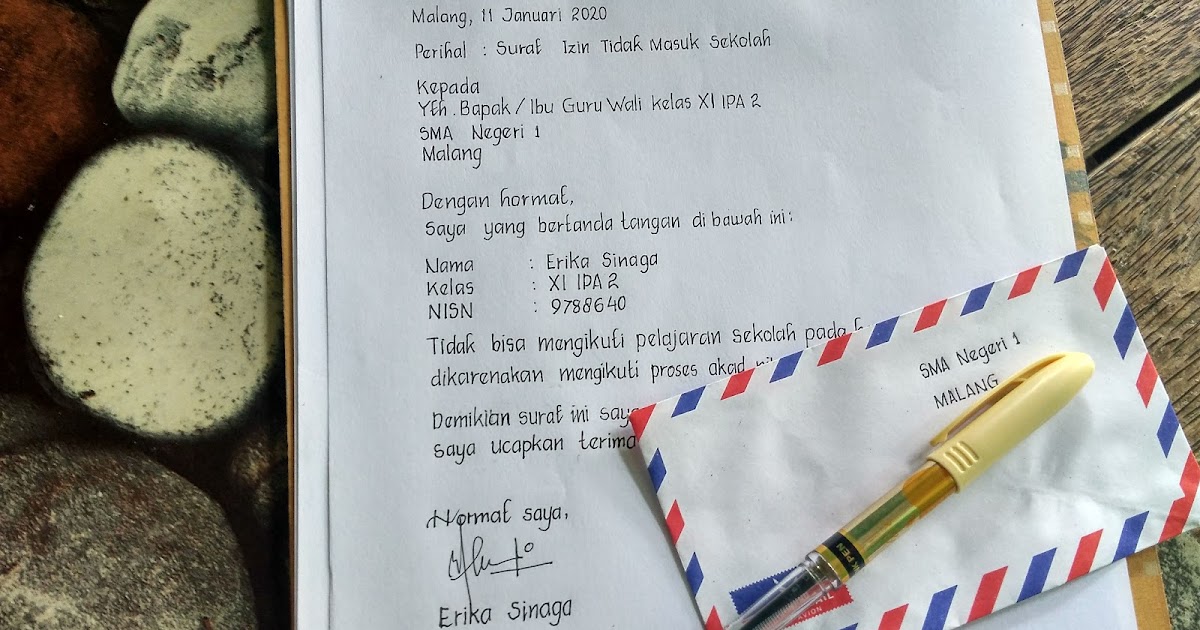 Malang, 11 Januari 2020
Perihal : Surat Izin Tidak Masuk Sekolah
Kepada
Yth. Bapak / Ibu Guru Wali Kelas XI IPA 2
SMA Negeri 1
Malang
Dengan hormat,
Saya yang bertanda tangan di bawah ini:
Nama : Erika Sinaga
Kelas : XI IPA 2
NISN : 9788640
Tidak bisa mengikuti pelajaran sekolah pada
dikarenakan mengikuti proses akad
Demikian surat ini
saya ucapkan
Hormat saya,
Erika Sinaga
SMA Negeri 1
MALANG